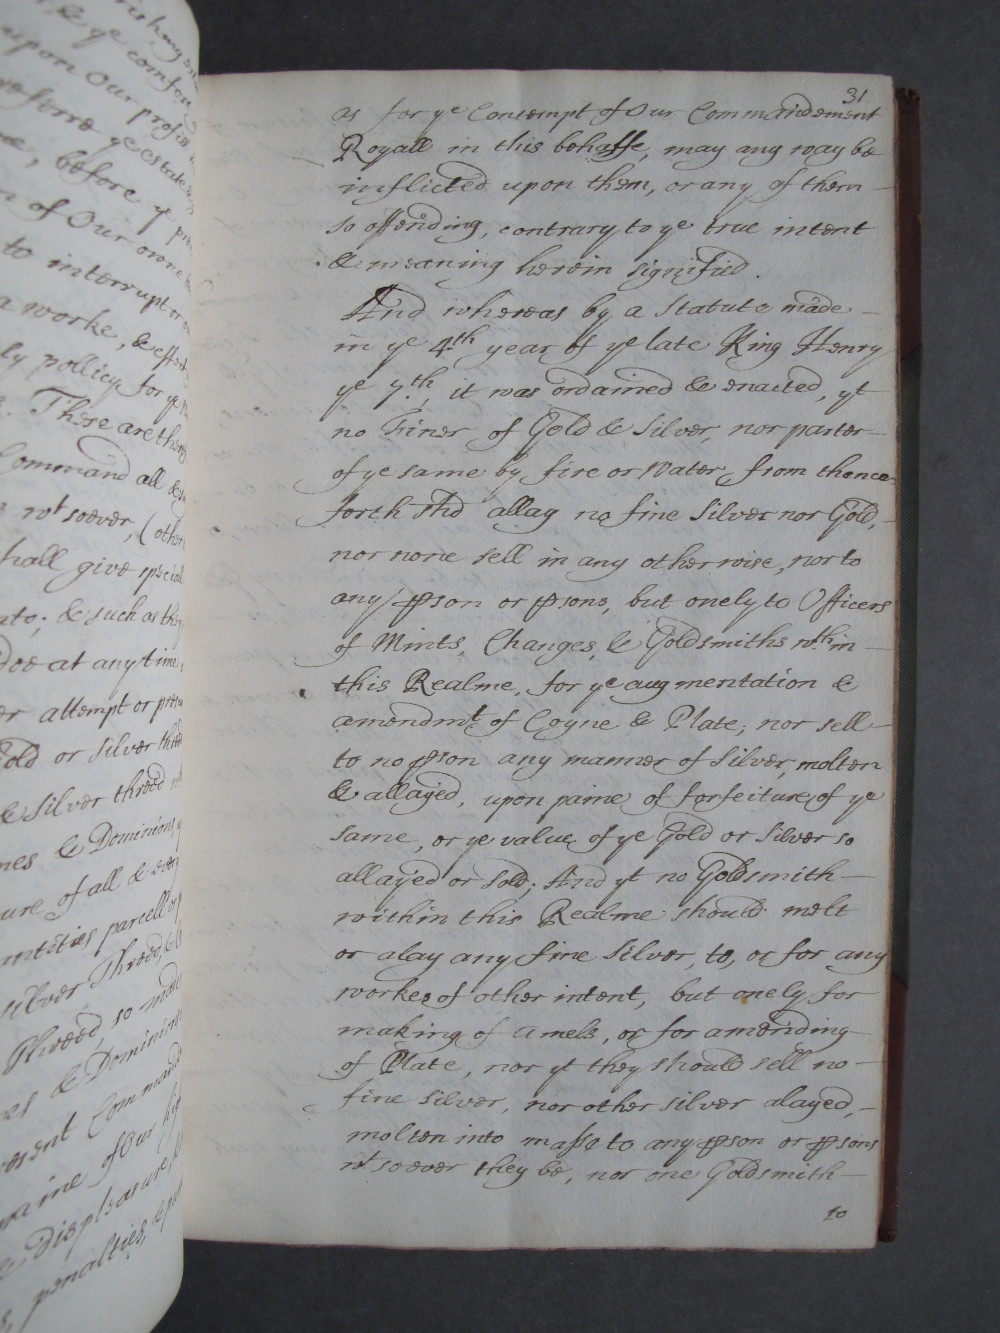 rishing
& ye comfor
upon Our profitt
before ye Estate
before ye
n of Our owne
to interrupt or
worke, & effect
ly pollicye for ye
There are ther
Command all &
wt soever, (other
hall give speciall
nto; & such as they
doe at any time
er attempt or
Gold or Silver thre
& Silver threed
mes & Dominions,
ure of all & every
antities parcell
Silver Threed,
Threed, so
es & Dominions
resent Command
paine of Our
Displeasure,
penalties, &
31
as for ye Contempt of Our Commandement
Royall in this behalfe, may any way be
inflicted upon them, or any of them —
so offending, contrary to ye true intent
& meaning herein signified.
And whereas by a Statute made —
in ye 4.th year of ye late King Henry
ye 7.th, it was ordained & enacted, yt
no Finer of Gold & Silver, nor parter —
of ye same by fire or Water, from thence
forth shd allay no fine Silver nor Gold,
nor none sell in any otherwise, nor to
any pson or psons, but onely to Officers
of Mints, Changes, & Goldsmiths wthin —
this Realme, for ye augmentation &
amendmt of Coyne & Plate; nor sell —
to no pson any manner of Silver, molten
& allayed, upon paine of forfeiture of ye
same, or ye value of ye Gold or Silver so
allayed or sold; And yt no Goldsmith —
within this Realme should melt
or alay any fine Silver, to, or for any
workes of other intent, but onely for
making of Amels, or for amending —
of Plate, nor yt they should sell no —
fine Silver, nor other Silver alayed, —
molten into masse to any pson or psons
wt soever they be, nor one Goldsmith —
to